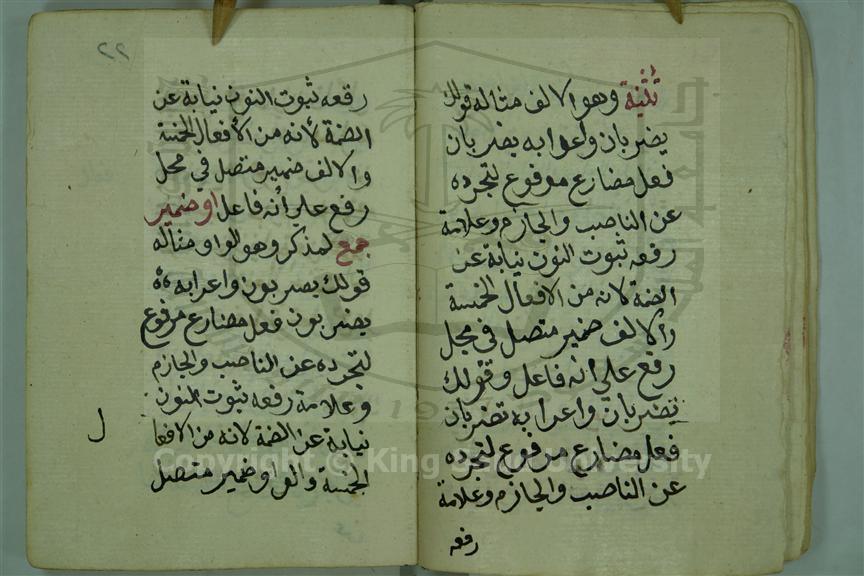 تثنية وهو الالف مثاله قولك
يضربان واعرابه يضربان
فعل مضارع مرفوع لتجرده
عن الناصب والجازم وعلامة
رفعه ثبوت النون نيابة عن
الضمة لانه من الافعال الخمسة
والالف ضمير متصل في محل
رفع على انه فاعل وقولك
تضربان واعرابه تضربان
فعل مضارع مرفوع لتجرده
عن الناصب والجازم وعلامة
رفعه
٢٢
رفعه ثبوت النون نيابة عن
الضمة لأنه من الأفعال الخمسة
والالف ضمير متصل في محل
رفع على أنه فاعل او ضمير
جمع لمذكر وهو الواو مثاله
قولك يضربون واعرابه
يضربون فعل مضارع مرفوع
لتجرده عن الناصب والجازم
وعلامة رفعه ثبوت النون
نيابة عن الضمة لانه من الافعا
ل
الخمسة والواو ضمير متصل
Copyright © King Saud University